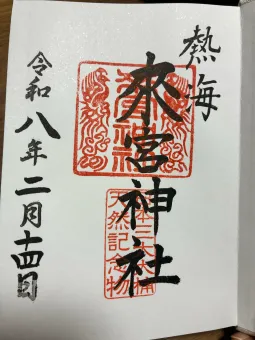 熱海
來宮神社
天然記念物
令和八年二月十四日